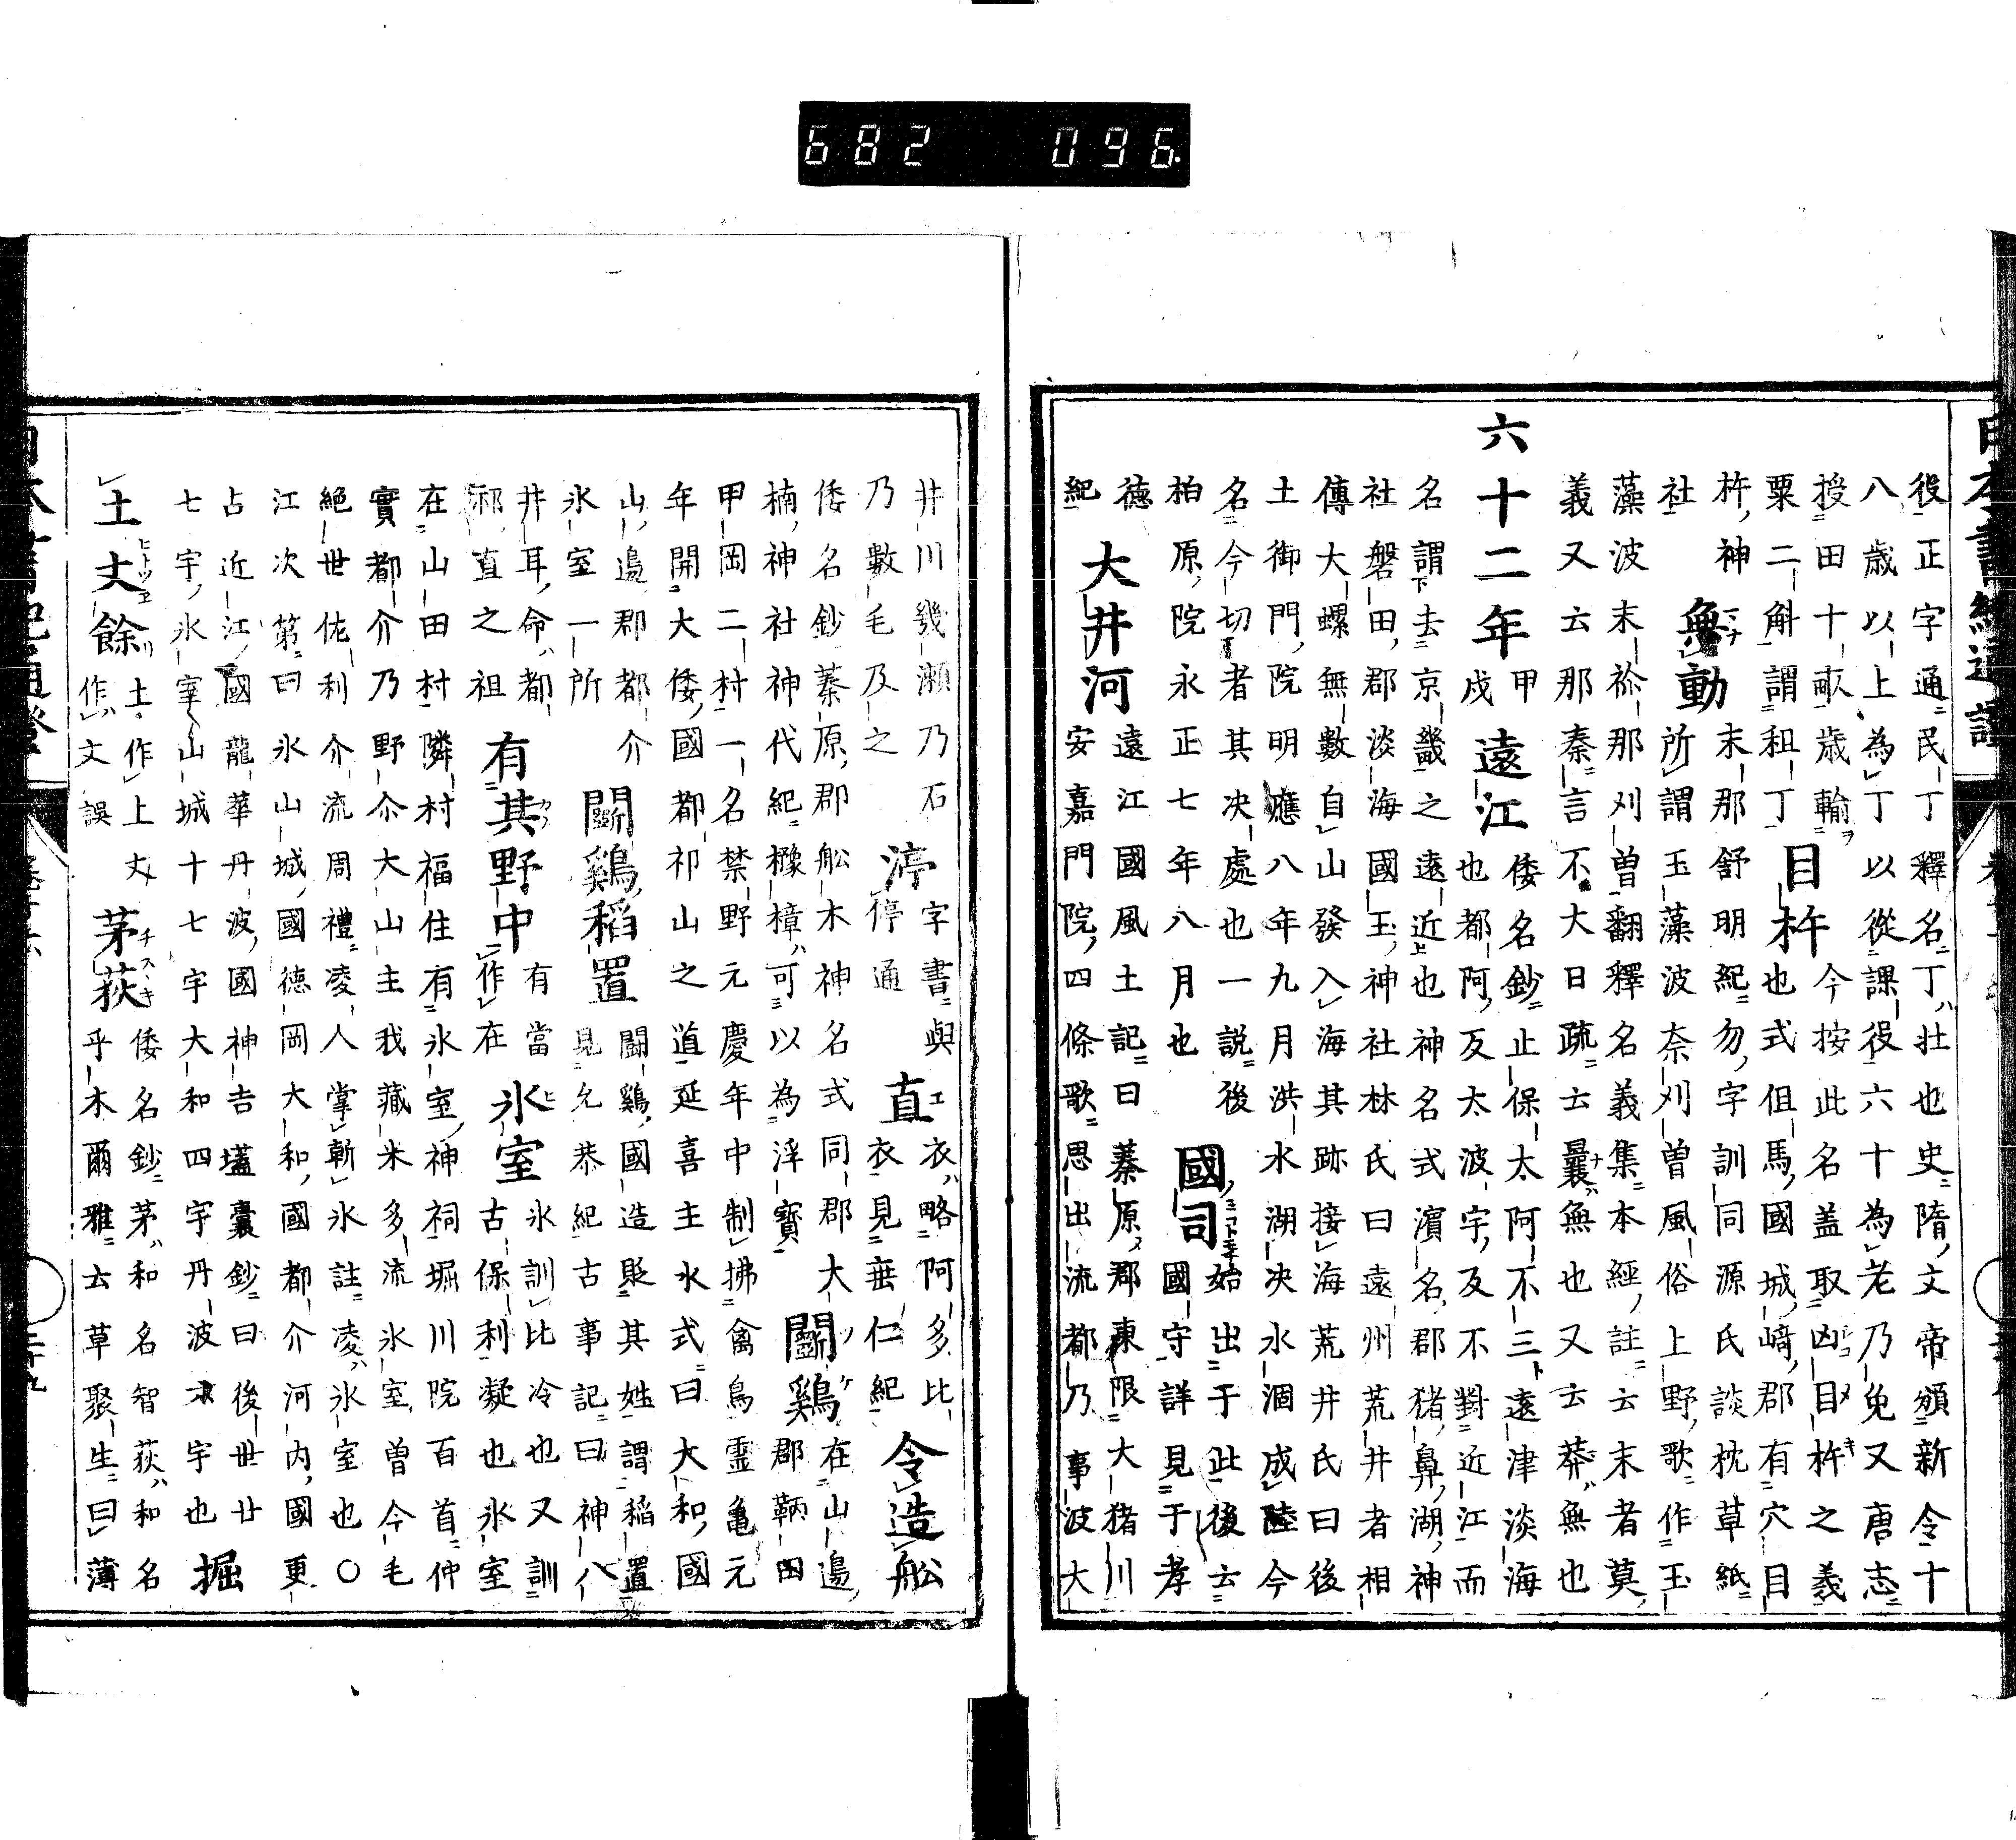 682 096
役正字通民丁釋名丁ハ壮也史隋文帝頒新令十
八歳以上為丁以從課役六十為老乃免又唐志
授田十畝歳輸ヲ 目杵 今按此名盖取凶目杵之義
粟二斛謂租丁 也式伹馬國城﨑郡有穴目
杵神 末那舒明紀勿字訓同源氏談枕草紙
社 無動 所謂玉藻波奈刈曽風俗上野歌作玉
藻波末祢那刈曽翻釋名義集本經註云末者莫
義又云那秦言不大日疏云曩ハ無也又云莽ハ無也
六十二年 甲戌 遠江 倭名鈔止保太阿不三遠津淡海
也都阿反太波宇反不對近江而
名謂去京畿之遠近也神名式濱名郡猪鼻湖神
社磐田郡淡海國玉神社林氏曰遠州荒井者相
傳大螺無數自山發入海其跡接海荒井氏曰後
土御門院明應八年九月洪水湖决水涸成陸今
名今切者其决處也一說後 國司 始出于此後云
柏原院永正七年八月也 國守詳見于孝
德 大井河 遠江國風土記曰蓁原郡東限大猪川
紀 安嘉門院四條歌思出流都乃事波大
井川幾瀬乃石 渟 字書與 直 衣ハ略阿多比 令造舩
乃數毛及之 停通 衣見垂仁紀
倭名鈔蓁原郡舩木神名式同郡大 闘鷄 在山邊
楠神社神代紀櫲樟ハ可以為浮寳 郡鞆田
甲岡二村一名禁野元慶年中制拂禽鳥霊亀元
年開大倭國都祁山之道延喜主水式曰大和國
山邊郡都介 闘鷄稻置 闘鷄國造貶其姓謂稲置
氷室一所 見允恭紀古事記曰神八
井耳命ハ都 有其野中 有當 氷室 氷訓比冷也又訓
祁直之祖 作在 古保利凝也氷室
在山田村隣村福住有氷室神祠堀川院百首仲
實都介乃野介大山主我藏米多流氷室曽今毛
絶世佐利介流周禮凌人掌斬氷註凌ハ氷室也〇
江次第曰氷山城國德岡大和國都介河内國更
占近江國龍華丹波國神吉壒囊鈔曰後世廿
七宇氷室山城十七宇大和四宇丹波才宇也 掘
土丈餘 土作上 茅荻 倭名鈔茅ハ和名智荻ハ和名
作文誤 乎木爾雅云草聚生曰薄